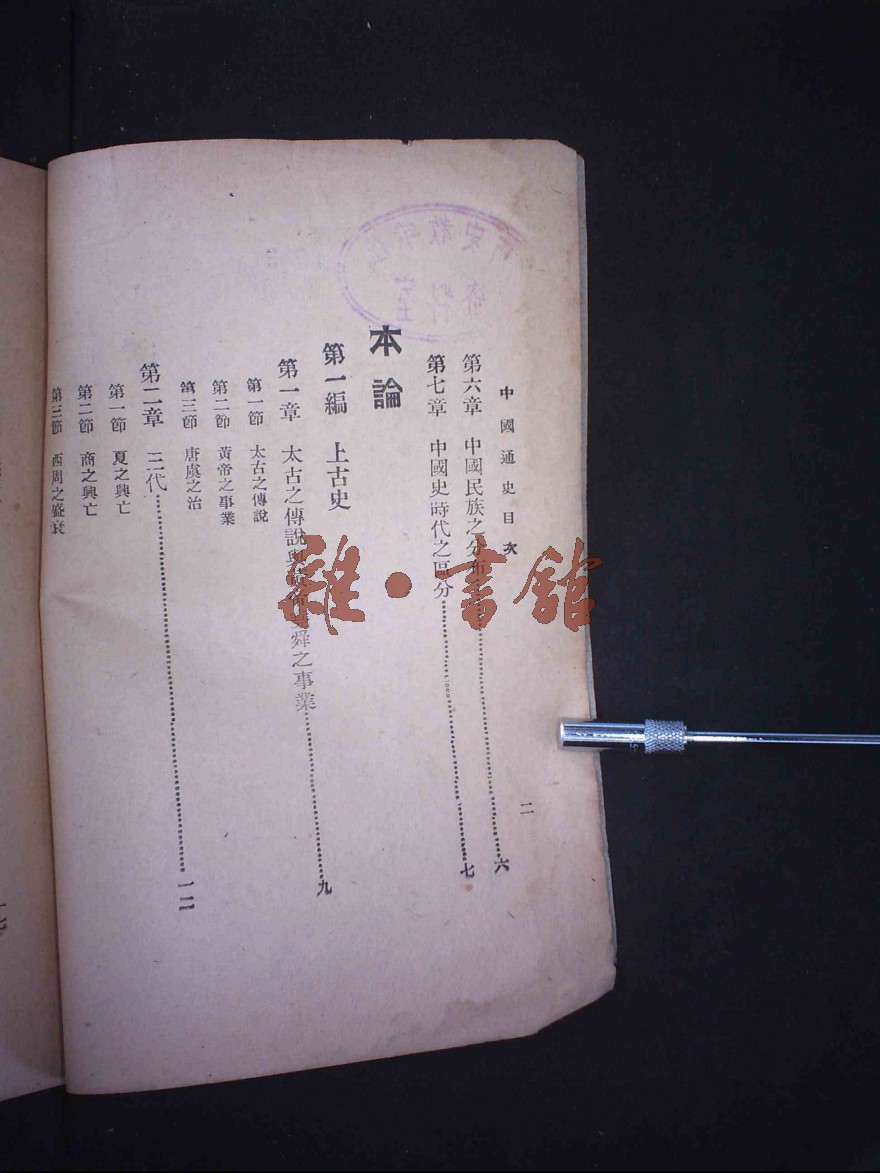 中國通史目次
二
第六章 中國民族之分布……六
第七章 中國史時代之區分……七
本論
第一編 上古史
第一章 太古之傳說與 堯舜之事業……九
第一節 太古之傳說
第二節 黃帝之事業
第三節 唐虞之治
第二章 三代……一二
第一節 夏之興亡
第二節 商之興亡
第三節 西周之盛衰
雜·書館